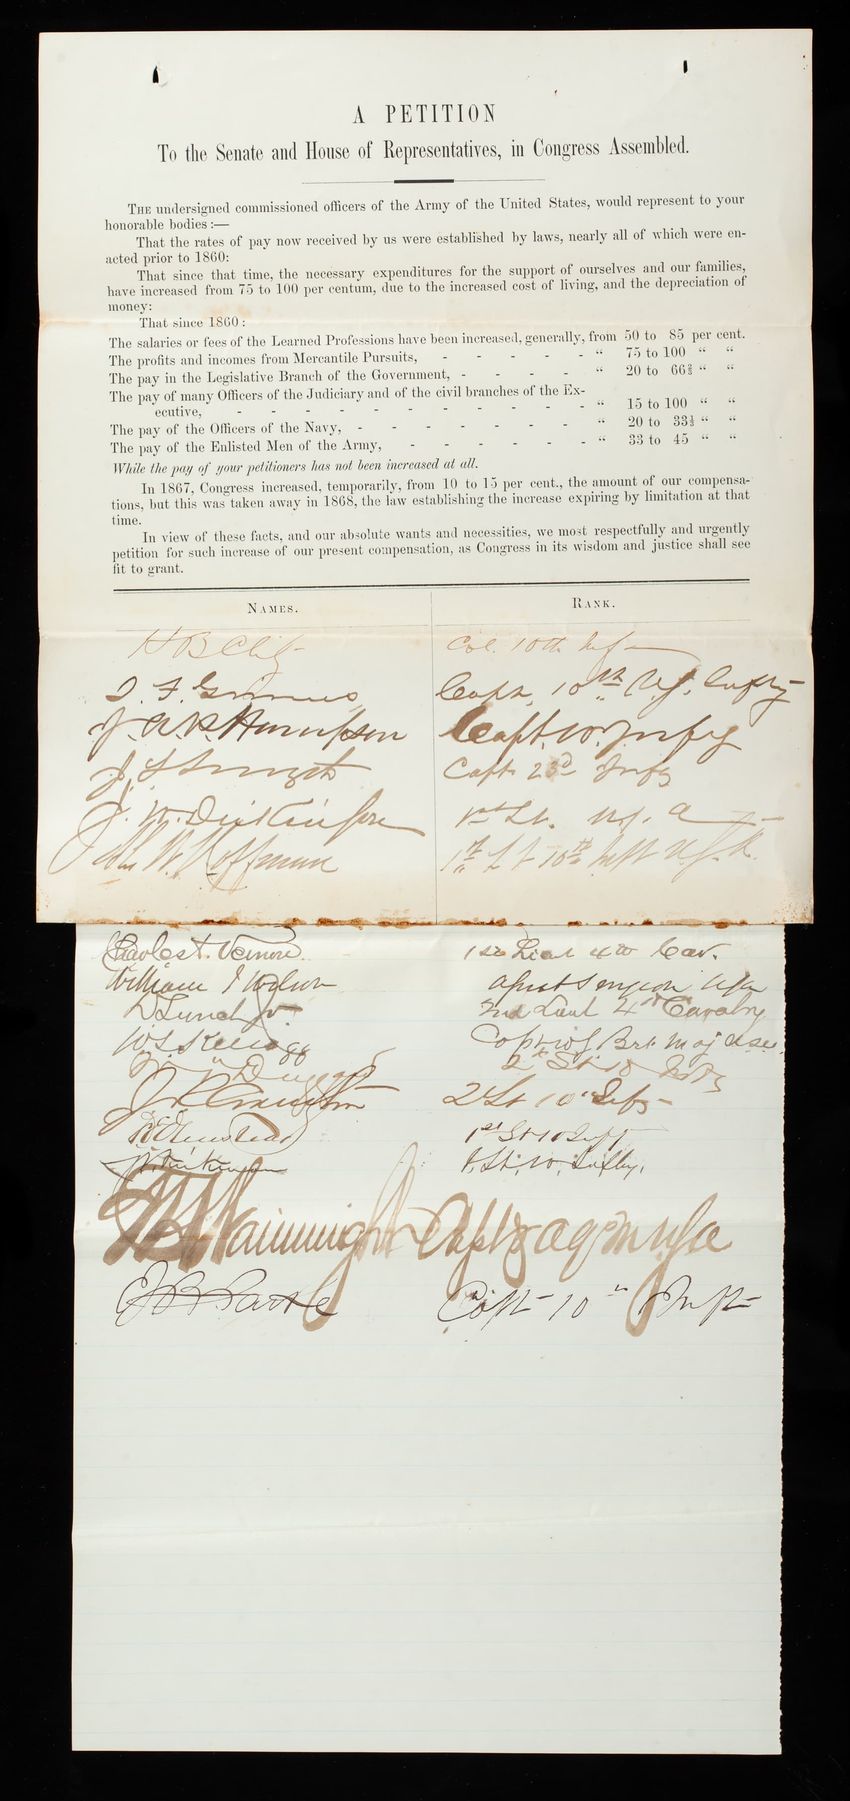 A PETITION
To the Senate and House of Representatives, in Congress Assembled.
THE undersigned commissioned officers of the Army of the United States, would represent to your
honorable bodies :—
That the rates of pay now received by us were established by laws, nearly all of which were en-
acted prior to 1860:
That since that time, the necessary expenditures for the support of ourselves and our families,
have increased from 75 to 100 per centum, due to the increased cost of living, and the depreciation of
money:
That since 1860 :
The salaries or fees of the Learned Professions have been increased, generally, from 50 to 85 per cent.
The profits and incomes from Mercantile Pursuits, - - - - - “ 75 to 100 “ “
The pay in the Legislative Branch of the Government, - - - - “ 20 to 66⅔ “ “
The pay of many Officers of the Judiciary and of the civil branches of the Ex-
ecutive, - - - - - - - - - - - “ 15 to 100 “ “
The pay of the Officers of the Navy, - - - - - - - “ 20 to 33⅓ “ “
The pay of the Enlisted Men of the Army, - - - - - - “ 33 to 45 “ “
While the pay of your petitioners has not been increased at all.
In 1867, Congress increased, temporarily, from 10 to 15 per cent., the amount of our compensa-
tions, but this was taken away in 1868, the law establishing the increase expiring by limitation at that
time.
In view of these facts, and our absolute wants and necessities, we most respectfully and urgently
petition for such increase of our present compensation, as Congress in its wisdom and justice shall see
fit to grant.
NAMES. RANK.
H B Clitz Col. 10th Inf
Capt. 10th U.S. Infty
J. A. P. Hampson Capt. 10. Infy
Capt 23d Infy
J. W. Dickinson 1st Lt. U.S. A
W. Hoffman 1st Lt 10th Inft U.S.A.
Charles A. Vernou 1st Lieut 4th Cav.
William J Wilson Asst Surgeon USA
D Lynch Jr 2nd Lieut 4th Cavalry
W. L. Kellogg Capt 10 Brt Maj
2d Lt 10 Infty
2d Lt 10th Infy
1st Lt 10 Inft
1. Lt. 10. Infty.
Wainwright Capt & USA
E B Parke Capt 10th Inft